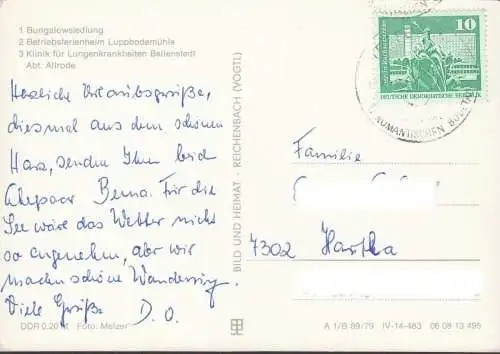 1 Bungalowsiedlung
2 Betriebsferienheim Luppbodemühle
3 Klinik für Lungenkrankheiten Ballenstedt
Abt. Allrode
Herzliche Urlaubsgrüße,
diesmal aus dem schönen
Harz, senden Ihnen beid
Ehepaar Für die
See wäre das Wetter nicht
so angenehm, aber wir
machen schöne Wanderung.
Viele Grüße D. O.
DDR 0,20 M Foto: Melzer
BILD UND HEIMAT · REICHENBACH (VOGTL)
10
DEUTSCHE DEMOKRATISCHE REPUBLIK
ROMANTISCHEN BODETAL
Familie
7302 Hartha
A 1/B 89/79 IV-14-483 06 08 13 495